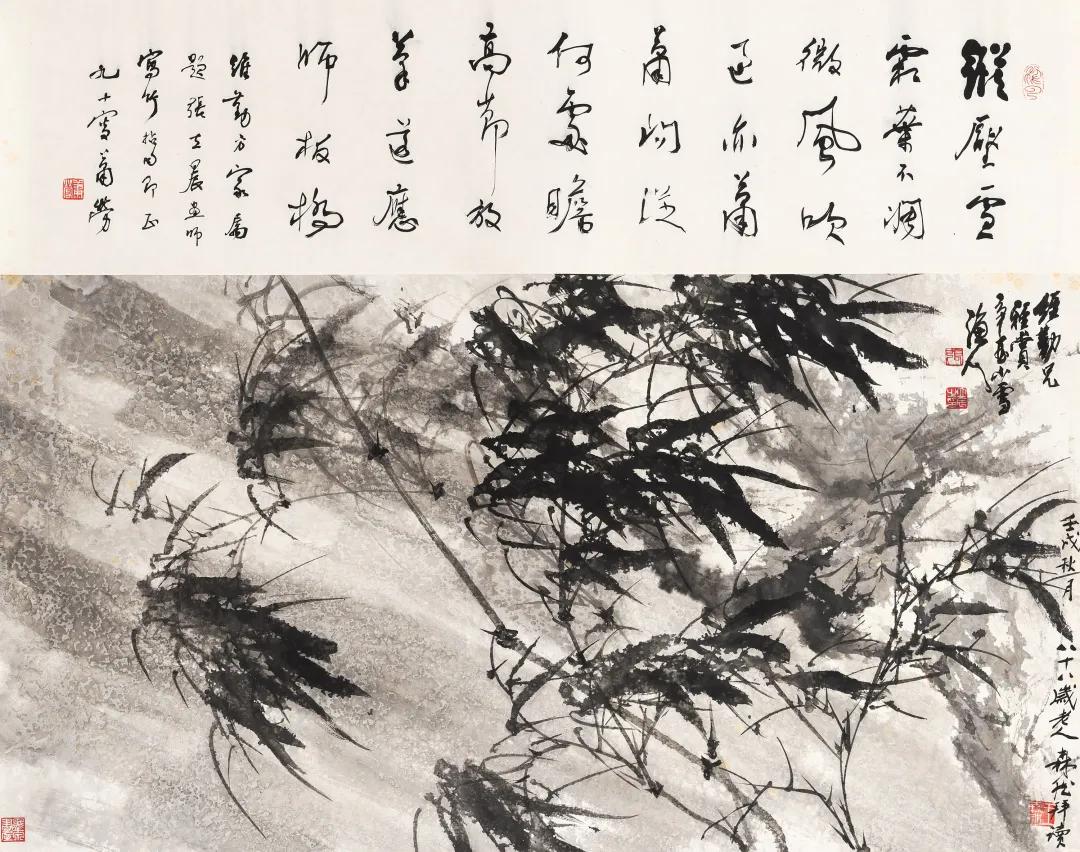 縱壓雪
霜葉不凋
微風吹
過亦蕭
蕭問從
何處瞻
高節放
筆還應
師板橋
維勤方家屬
題張晨畫師
寫竹即正
九十叟蕭勞
維勤兄
雅賞
辛酉小雪
漁人
壬戌秋月 八十八歲老人森然拜讀